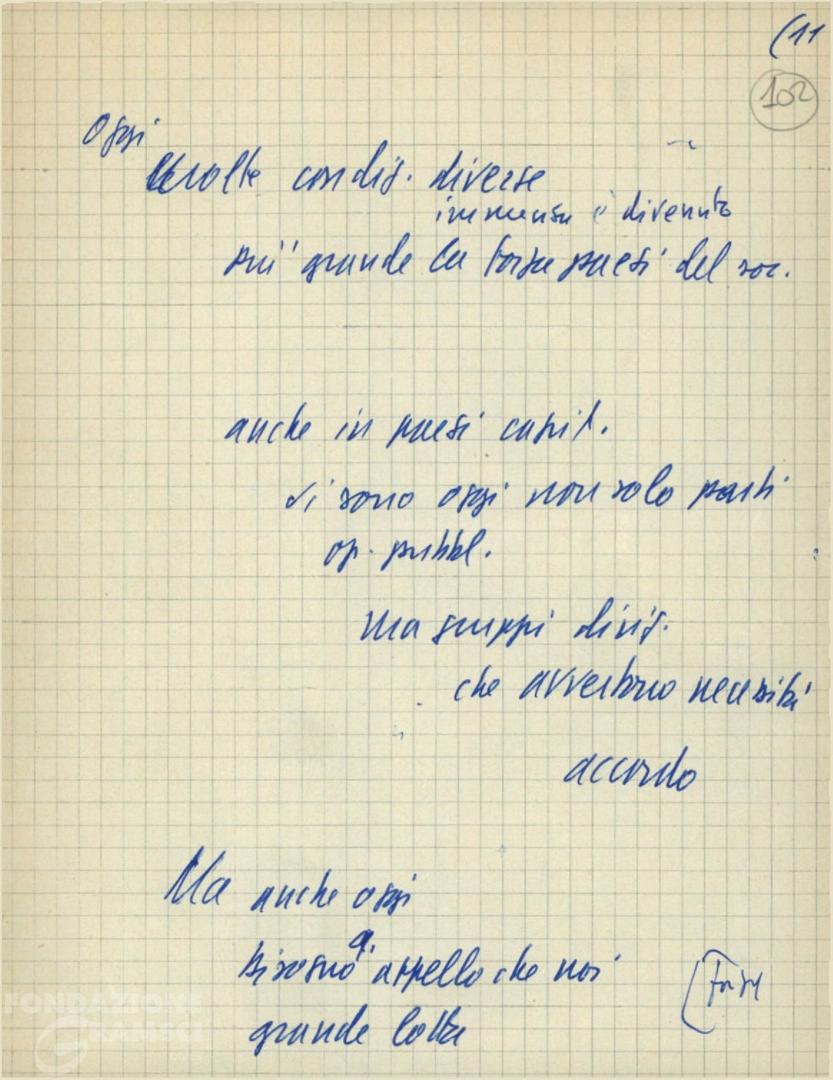 (11
102
Oggi
Molte condiz. diverse
immensa è divenuta
più grande la forza paesi del soc.
anche in paesi capit.
vi sono oggi non solo parti
op. pubbl.
ma gruppi dirig.
che avvertono necessità
accordo
Ma anche oggi
bisogno appello che noi
grande lotta
FONDAZIONE
GRAMSCI